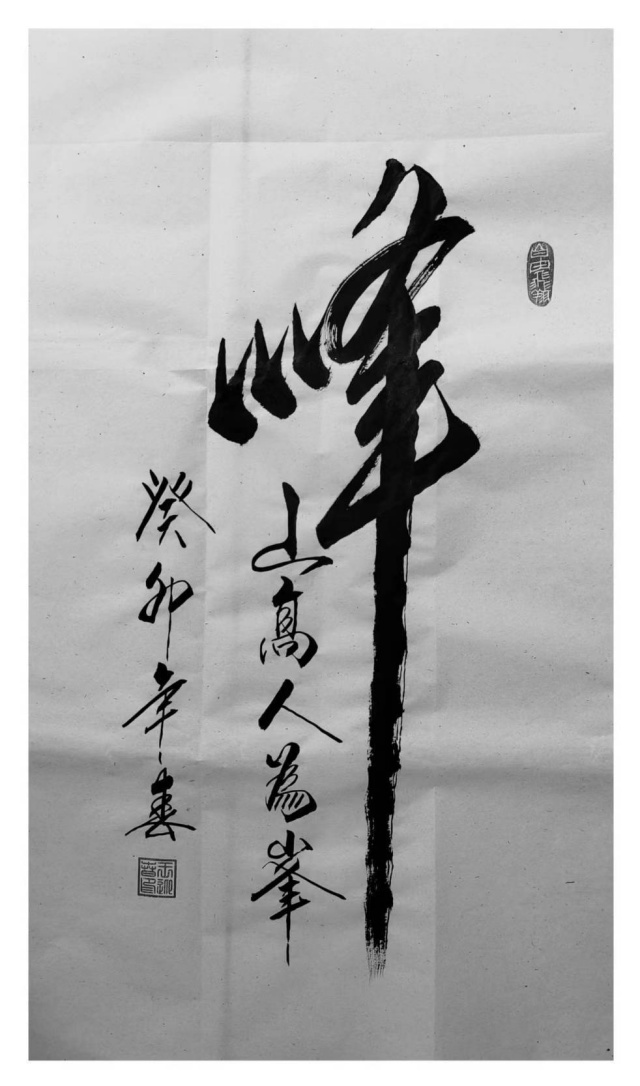 峰
山高人為峯
癸卯年春